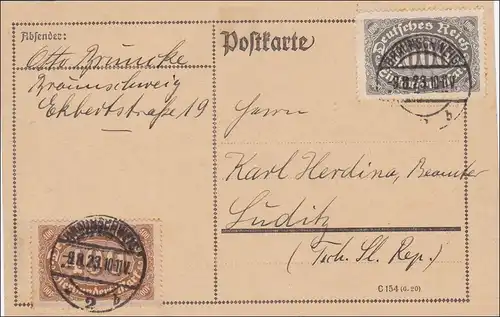 Absender:
Otto Brüncke
Braunschweig
Ekbertstraße 19
Postkarte
Deutsches Reich
BRAUNSCHWEIG
9.8.23.10-11V
2 b
Herrn
Karl Herdina, Beamter
Luditz
(Tsch. Sl. Rep.)
BRAUNSCHWEIG
9.8.23.10-11V
2 b
C 154 (6. 20)